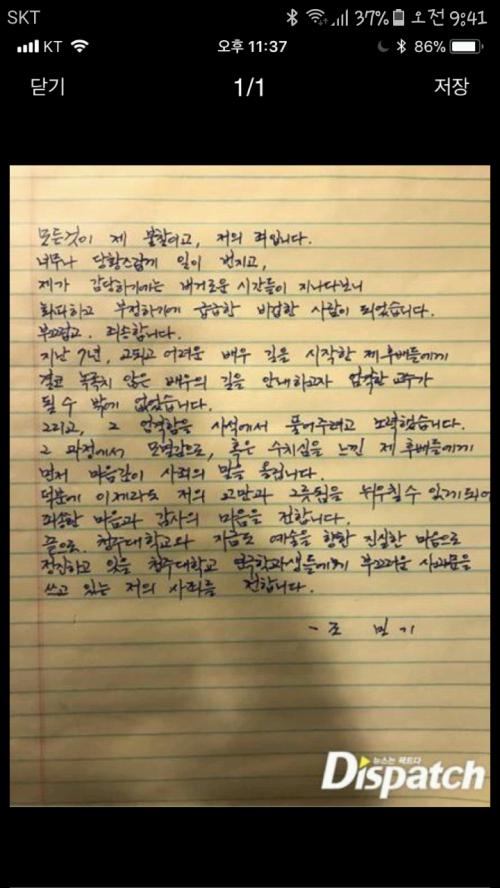 SKT 37% 오전 9:41
KT 오후 11:37 86%
닫기 1/1 저장
모든것이 제 불찰이고, 저의 죄입니다.
너무나 당황스럽게 일이 번지고,
제가 감당하기에는 버거운 시간들이 지나다보니
회피하고 부정하기에 급급한 비겁한 사람이 되었습니다.
부끄럽고. 죄송합니다.
지난 7년, 고되고 어려운 배우 길을 시작한 제 후배들에게
결코 녹록치 않은 배우의 길을 안내하고자 엄격한 교수가
될 수 밖에 없었습니다.
그리고, 그 엄격함을 사석에서 풀어주려고 노력했습니다.
그 과정에서 모멸감으로, 혹은 수치심을 느낀 제 후배들에게
먼저 마음깊이 사죄의 말을 올립니다.
덕분에 이제라도 저의 교만과 그릇됨을 뉘우칠 수 있게되어
죄송한 마음과 감사의 마음을 전합니다.
끝으로. 청주대학교와 지금도 예술을 향한 진실한 마음으로
정진하고 있을 청주대학교 연극학과생들에게 부끄러운 사과문을
쓰고 있는 저의 사죄를 전합니다.
- 조 민 기
뉴스는 팩트다
Dispatch